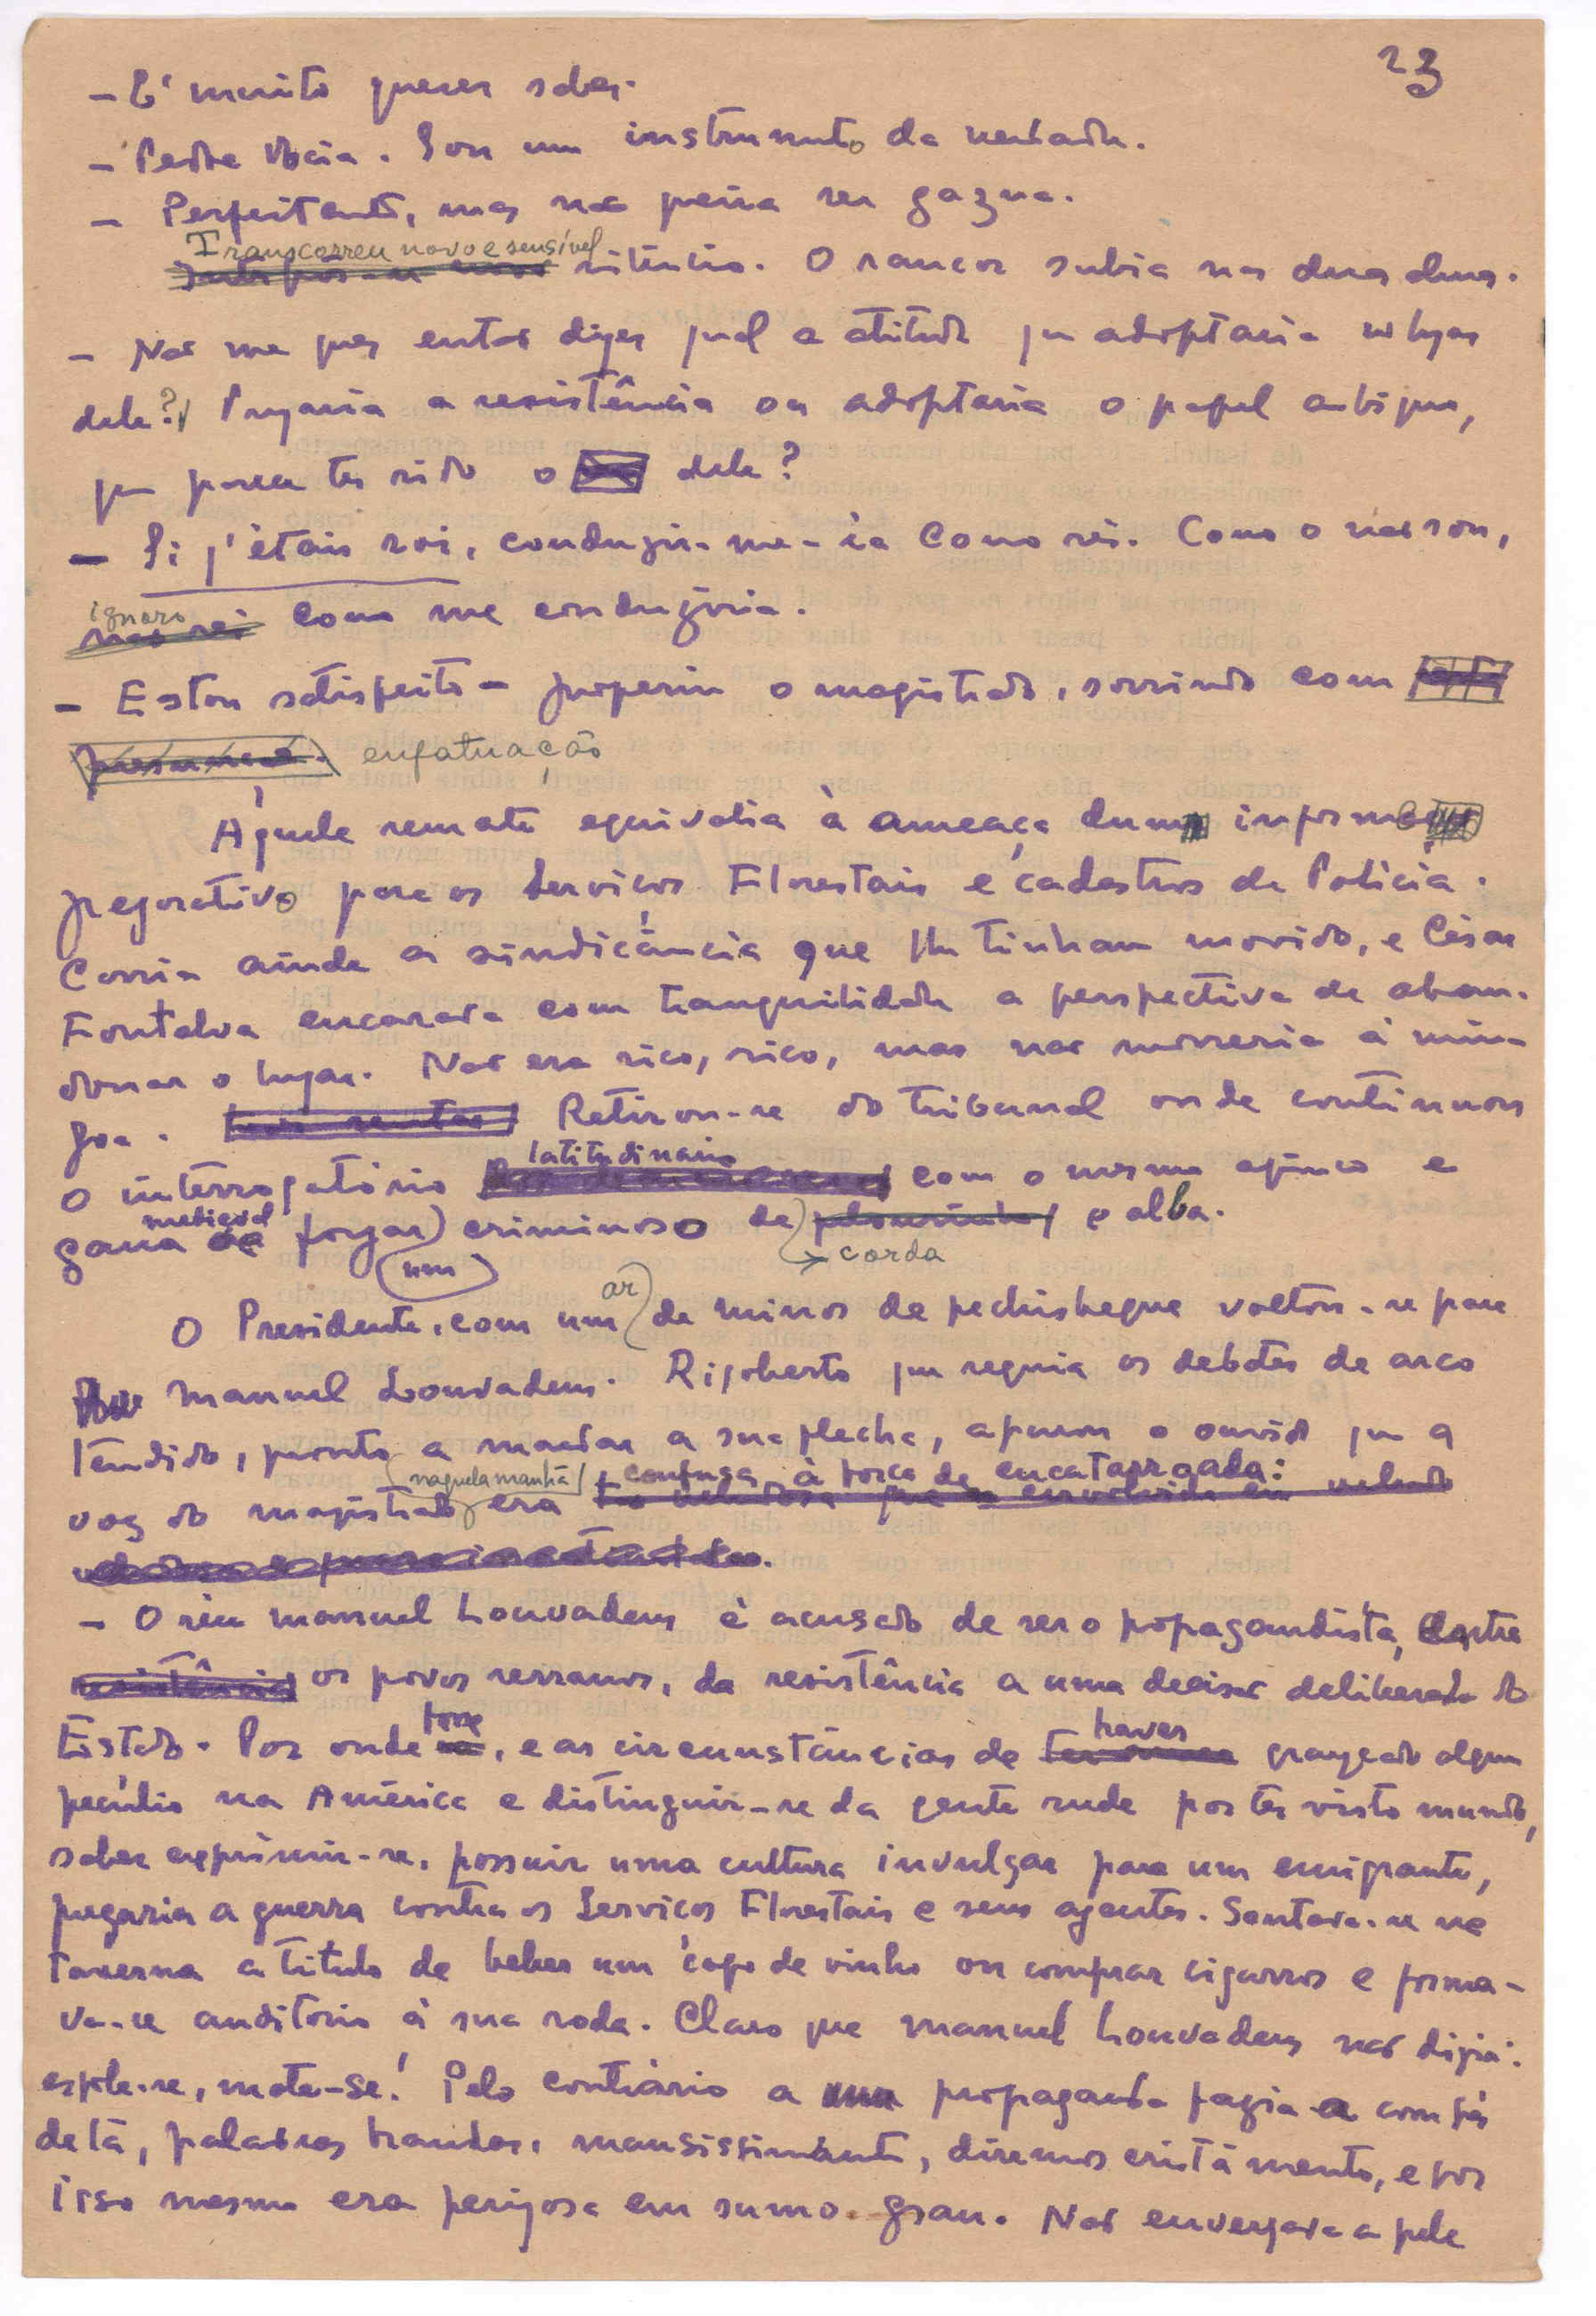 23
- É muito querer saber.
- Perdoe Vocia. Sou um instrumento da verdade.
- Perfeitamente, mas não queira ser gazua.
Transcorreu novo e sensível silêncio. O rancor subia nas duas almas.
- Não me quer então dizer qual a atitude que adoptaria no lugar
dele? Pregaria a resistência ou adoptaria o papel ambíguo,
que parece ter sido o dele?
- Si j'étais roi, conduzir-me-ia como rei. Como o não sou,
ignoro como me conduziria.
- Estou satisfeito - proferiu o magistrado, sorrindo com
enfatuação
Aquele remate equivalia à ameaça dum informe
pejorativo para os Serviços Florestais e cadastros da Polícia.
Corria ainda a sindicância que lhe tinham movido, e César
Fontalva encarara com tranquilidade a perspectiva de aban-
donar o lugar. Não era rico, rico, mas não morreria à mín-
goa. Retirou-se do tribunal onde continuou
o interrogatório latitudinário com o mesmo afinco e
gana medieval forjar um criminoso de corda e alba.
O Presidente, com um ar de minos de pechisbeque voltou-se para
Manuel Louvadeus. Rigoberto que seguia os debates de arco
tendido, pronto a mandar a sua flecha, apurou o ouvido que a
voz do magistrado naquela manhã era confusa, à força de encatarroada:
- O réu Manuel Louvadeus é acusado de ser o propagandista, entre
os povos serranos, da resistência a uma decisão deliberada do
Estado. Por onde fosse, e as circunstâncias de haver granjeado algum
pecúlio na América e distinguir-se da gente rude por ter visto mundo,
saber exprimir-se, possuir uma cultura invulgar para um emigrante,
pregaria a guerra contra os Serviços Florestais e seus agentes. Sentava-se na
taverna a título de beber um copo de vinho ou comprar cigarros e forma-
va-se auditório à sua roda. Claro que Manuel Louvadeus não dizia:
esfole-se, mate-se! Pelo contrário a propaganda fazia a com pés
de lã, palavras brandas, mansissimamente, diremos cristãmente, e por
isso mesmo era perigosa em sumo grau. Não envergava a pele